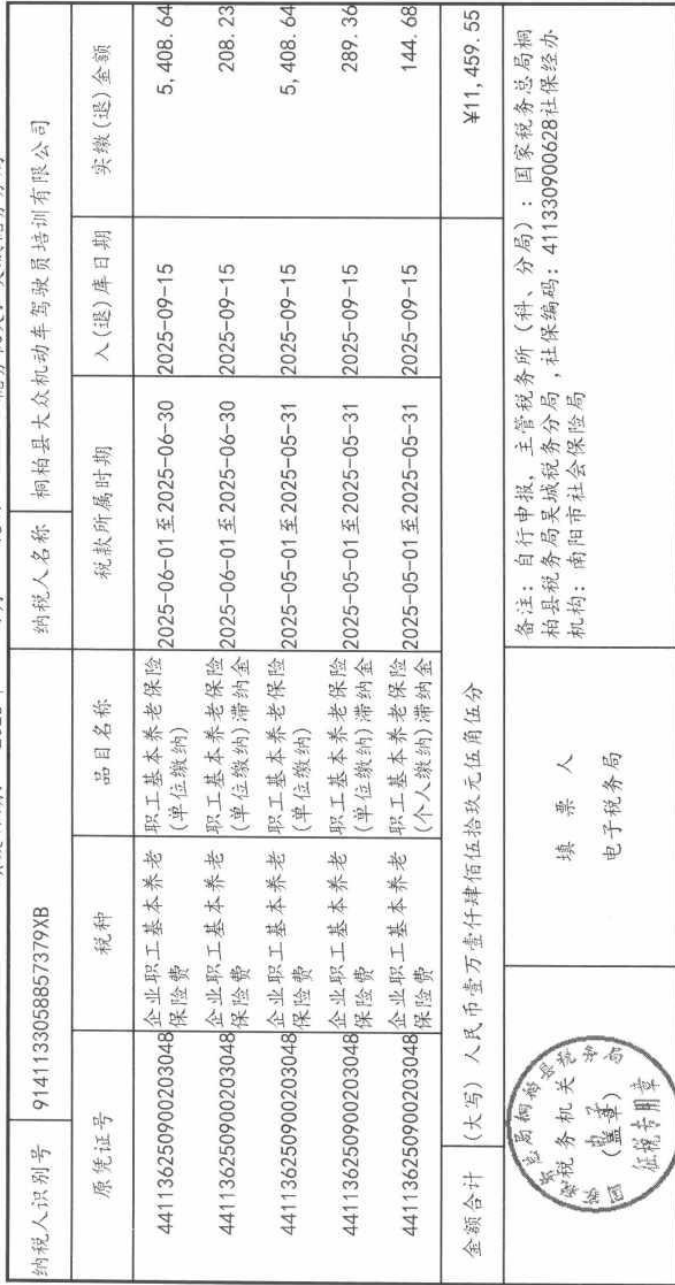 纳税人识别号 91411330588573​79XB 纳税人名称 桐柏县大众机动车驾驶员培训有限公司
原凭证号 税种 品目名称 税款所属时期 入(退)库日期 实缴(退)金额
441136250900203048 企业职工基本养老保险费 职工基本养老保险(单位缴纳) 2025-06-01至2025-06-30 2025-09-15 5,408.64
441136250900203048 企业职工基本养老保险费 职工基本养老保险(单位缴纳)滞纳金 2025-06-01至2025-06-30 2025-09-15 208.23
441136250900203048 企业职工基本养老保险费 职工基本养老保险(单位缴纳) 2025-05-01至2025-05-31 2025-09-15 5,408.64
441136250900203048 企业职工基本养老保险费 职工基本养老保险(单位缴纳)滞纳金 2025-05-01至2025-05-31 2025-09-15 289.36
441136250900203048 企业职工基本养老保险费 职工基本养老保险(个人缴纳)滞纳金 2025-05-01至2025-05-31 2025-09-15 144.68
金额合计 (大写)人民币壹万壹仟肆佰伍拾玖元伍角伍分 ¥11,459.55
税务机关
(盖章)
征税专用章
填 票 人
电子税务局
备注：自行申报，主管税务所（科、分局）：国家税务总局桐
柏县税务局吴城税务分局，社保编码：411330900628社保经办
机构：南阳市社会保险局